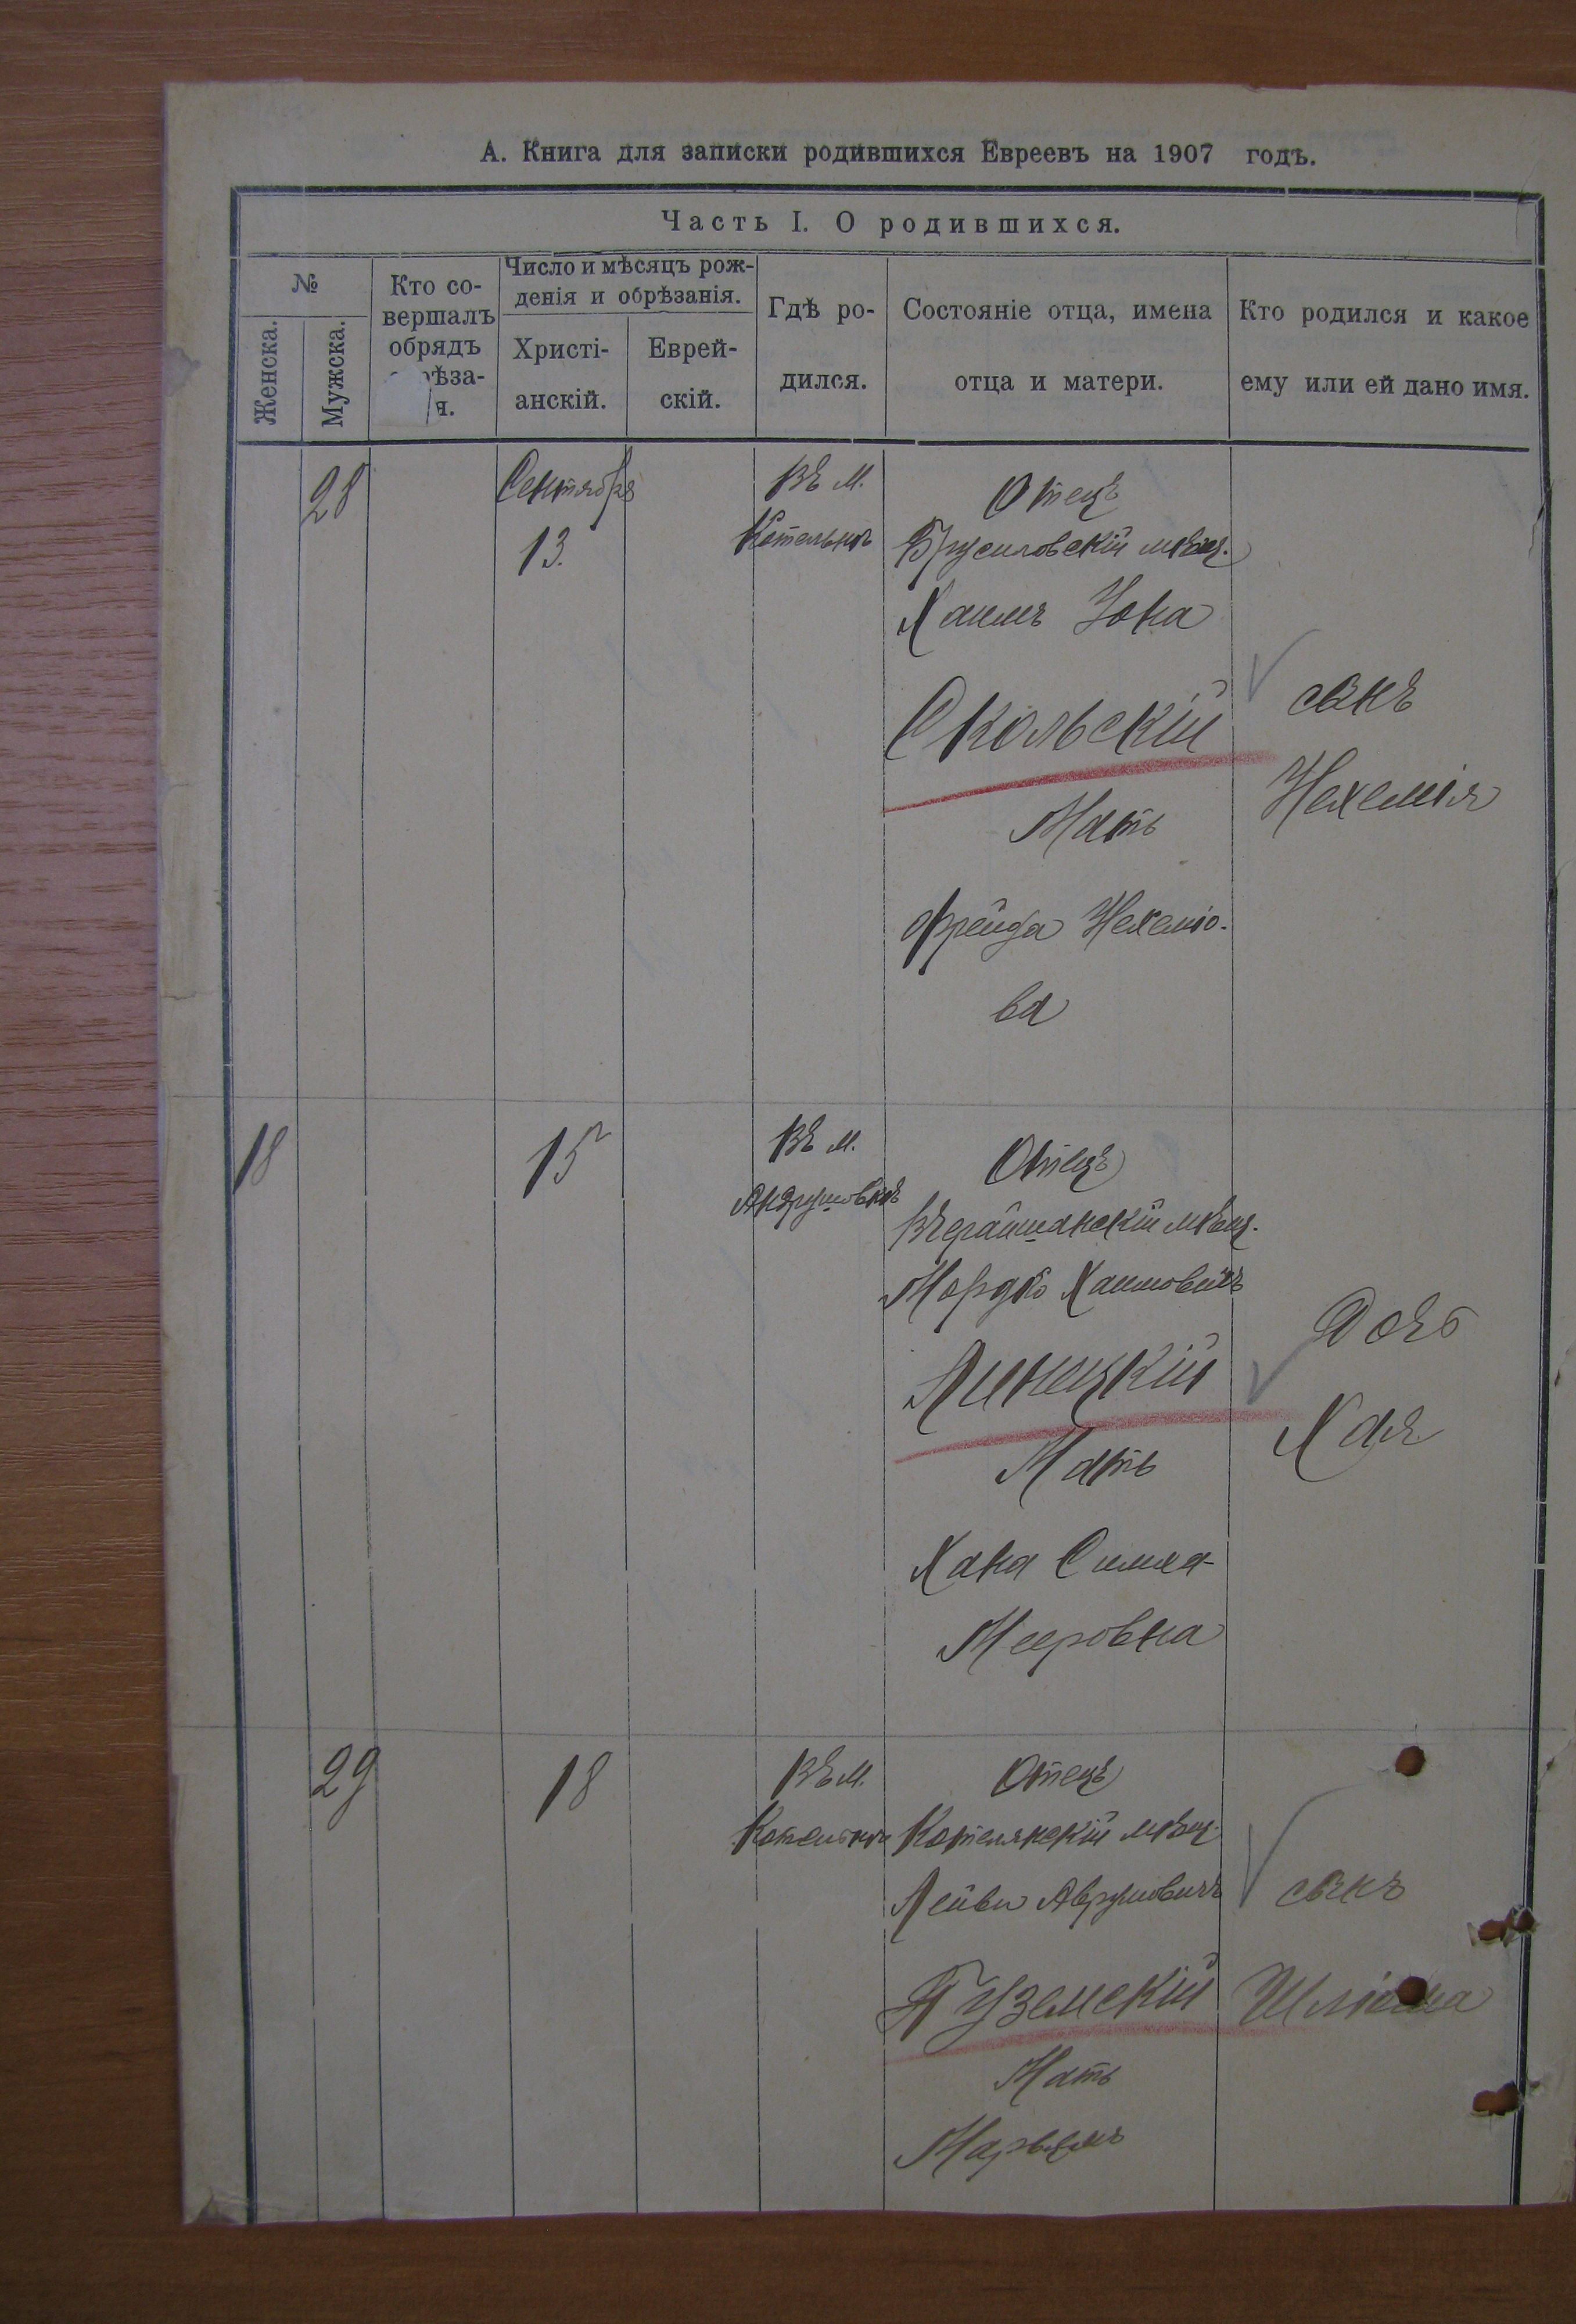 А. Книга для записки родившихся Евреевъ на 1907 годъ.
Часть I. О родившихся.
№
Женска.
Мужска.
Кто со-
вершалъ
обрядъ
ѣза-
я.
Число и мѣсяцъ рож-
денія и обрѣзанія.
Христі-
анскій.
Еврей-
скій.
Гдѣ ро-
дился.
Состояніе отца, имена
отца и матери.
Кто родился и какое
ему или ей дано имя.
28
Сентября
13.
Въ м.
Котельнѣ
Отецъ
Брусиловскій мѣщ.
Хаимъ Іона
Скольскій
Мать
Фрейда Нехеміо-
ва
сынъ
Нехемія
18
15
Въ м.
Андрушовкѣ
Отецъ
Вчерайшанскій мѣщ.
Мордко Хаимовичъ
Линецкій
Мать
Хана Симха-
Мееровна
Дочь
Хая
29
18
Въ м.
Котельнѣ
Отецъ
Котелянскій мѣщ.
Лейви Аврумовичъ
Гуземскій
Мать
Марьямъ
сынъ
Шліома